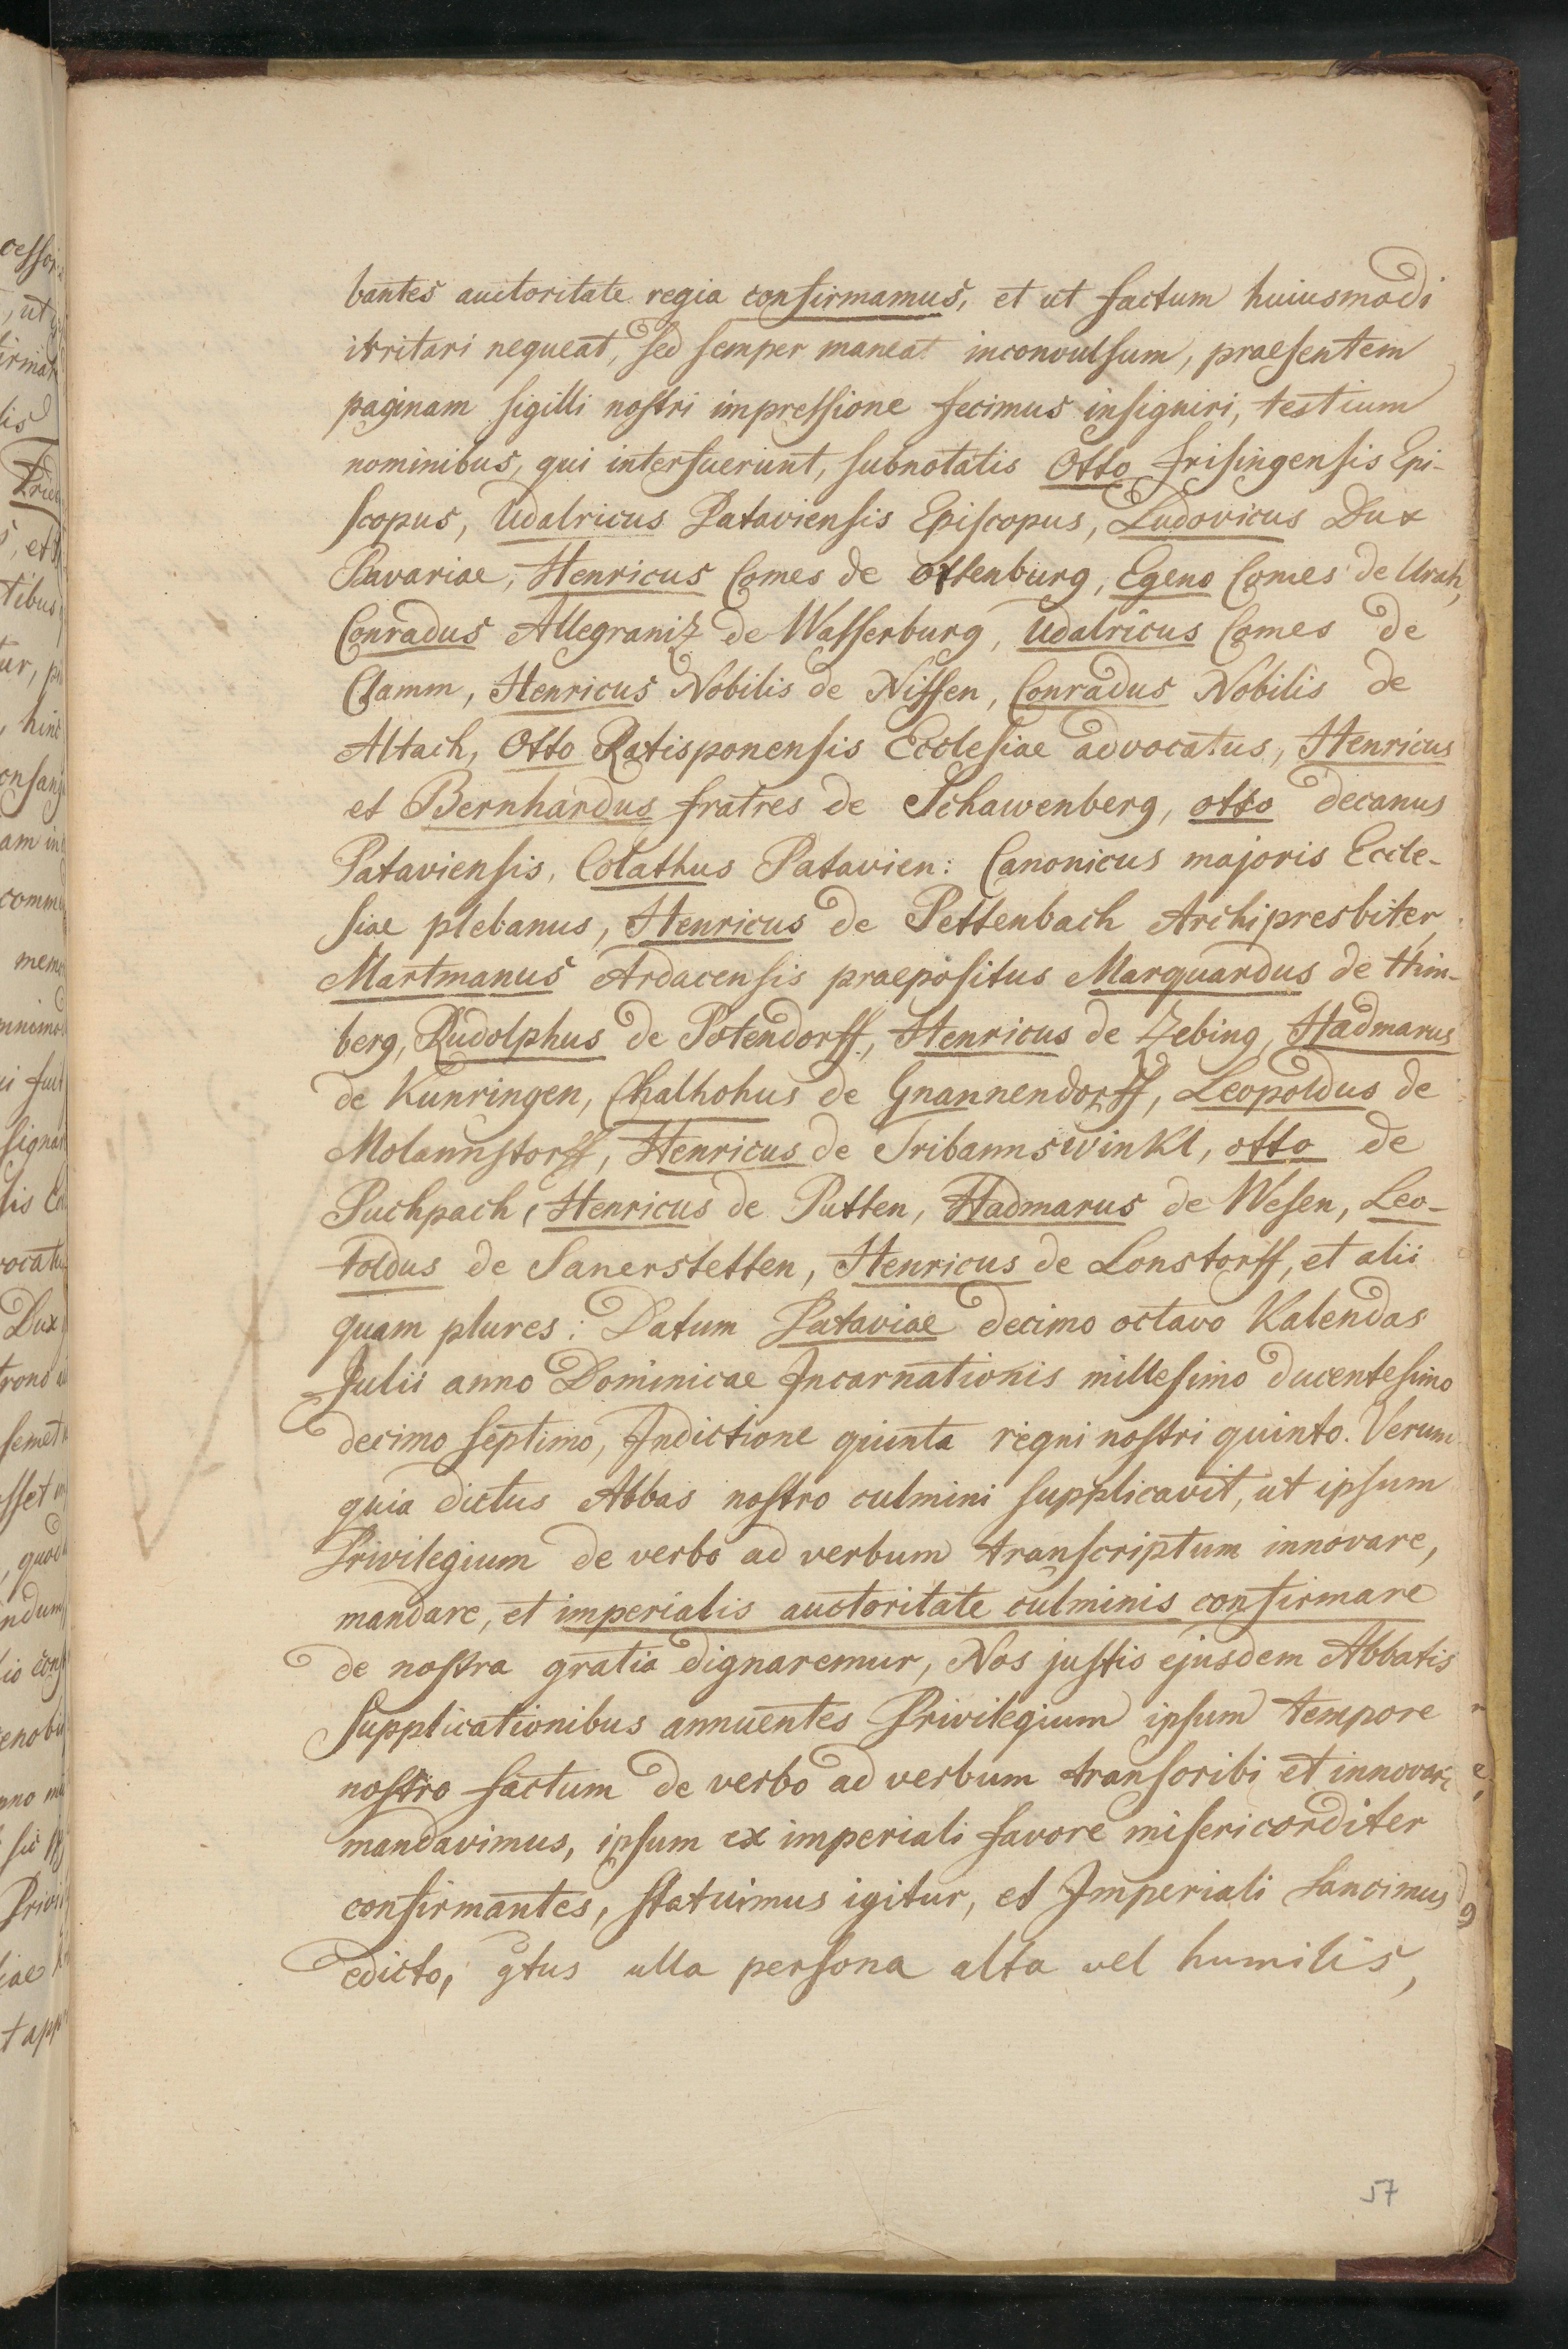 bantes auctoritate regia confirmamus, et ut factum huiusmodi
irritari nequeat, sed semper maneat inconvulsum, praesentem
paginam sigilli nostri impressione fecimus insigniri, testium
nominibus, qui interfuerunt, subnotatis Otto Frisingensis Epi-
scopus, Udalricus Pataviensis Episcopus, Ludovicus Dux
Bavariae, Henricus Comes de Ottenburg, Egeno Comes de Urah,
Conradus Allegraniz de Wasserburg, Udalricus Comes de
Clamm, Henricus Nobilis de Niffen, Conradus Nobilis de
Altach, Otto Ratisponensis Ecclesiae advocatus, Henricus
et Bernhardus fratres de Schawenberg, otto decanus
Pataviensis, Colathus Patavien: Canonicus majoris Eccle-
siae plebanus, Henricus de Pettenbach Archipresbiter,
Martmanus Ardacensis praepositus Marquardus de Him-
berg, Rudolphus de Potendorff, Henricus de Zebing, Hadmarus
de Kunringen, Chalhohus de Gnannendorff, Leopoldus de
Molannstorff, Henricus de Tribannswinkl, otto de
Puchpach, Henricus de Putten, Hadmarus de Wesen, Leo-
toldus de Sanerstetten, Henricus de Lonstorff, et alii
quam plures: Datum Pataviae decimo octavo Kalendas
Julii anno Dominicae Incarnationis millesimo ducentesimo
decimo septimo, Indictione quinta regni nostri quinto. Verum
quia dictus Abbas nostro culmini supplicavit, ut ipsum
Privilegium de verbo ad verbum transcriptum innovare,
mandare, et imperialis auctoritate culminis confirmare
de nostra gratia dignaremur, Nos justis ejusdem Abbatis
supplicationibus annuentes Privilegium ipsum tempore
nostro factum de verbo ad verbum transcribi et innovari
mandavimus, ipsum ex imperiali favore misericorditer
confirmantes, statuimus igitur, et Imperiali Sancimus
edicto, ulla persona alta vel humilis,
57